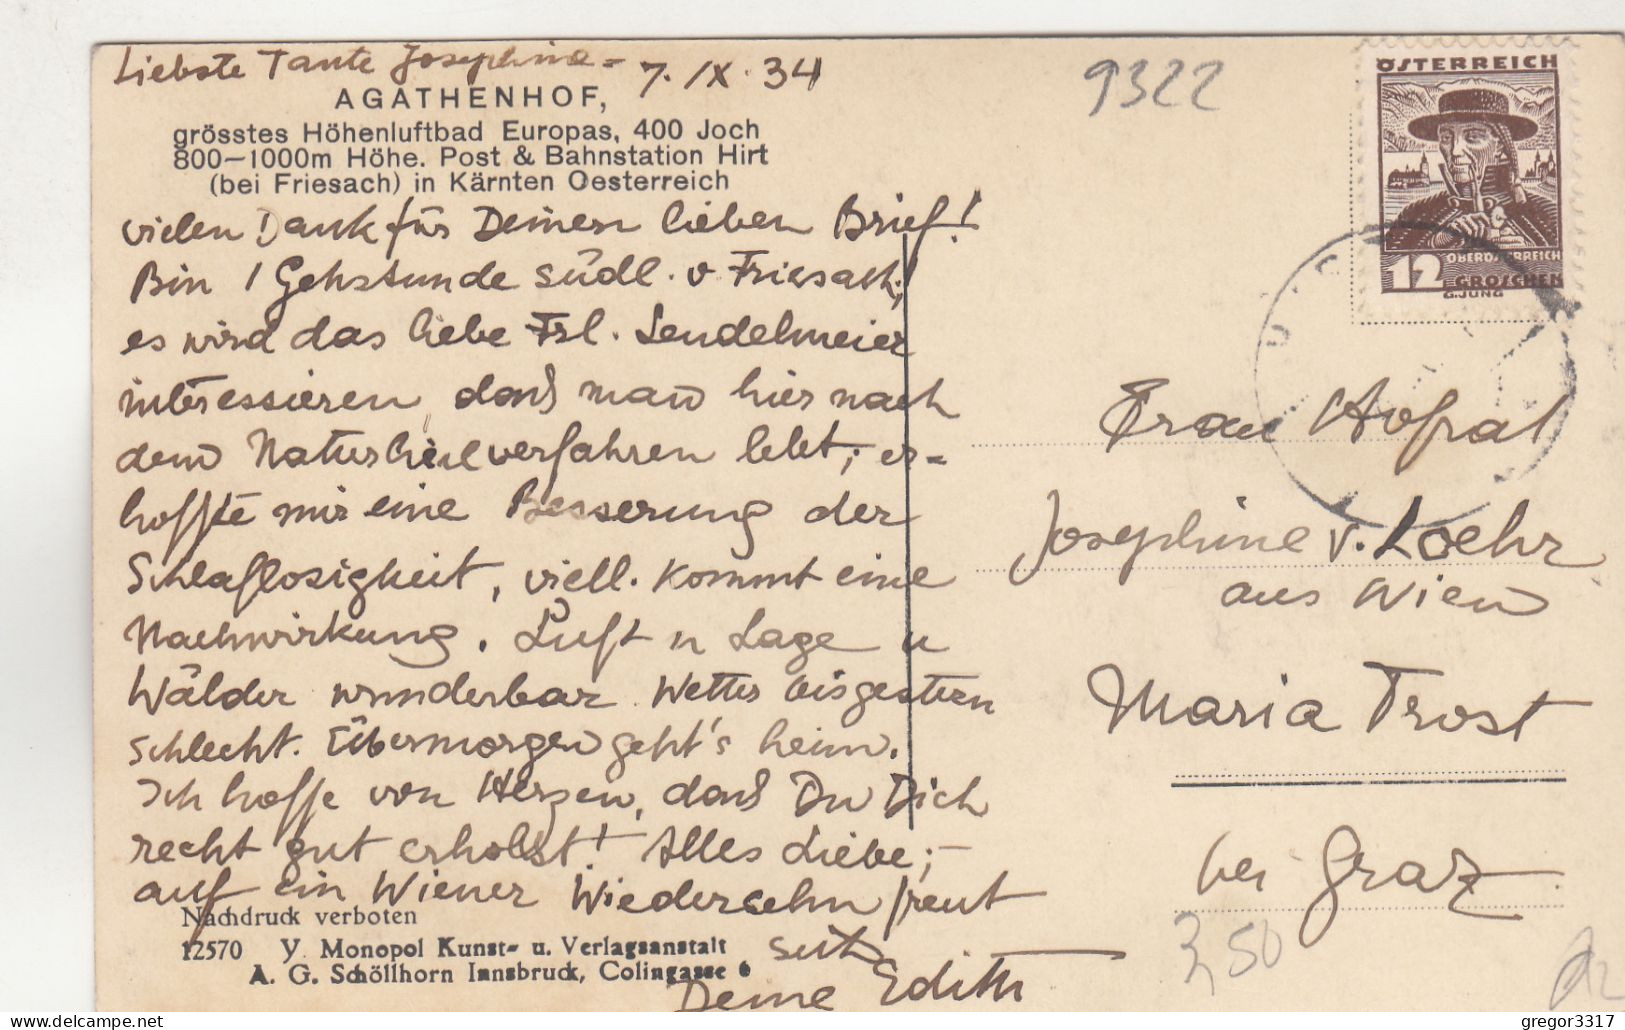 Liebste Tante Josephine - 7. IX. 34
AGATHENHOF,
grösstes Höhenluftbad Europas, 400 Joch
800-1000m Höhe. Post & Bahnstation Hirt
(bei Friesach) in Kärnten Oesterreich
vielen Dank für Deinen lieben Brief!
Bin 1 Gehstunde südl. v Friesach,
es wird das liebe Frl. Lendelmeier
interessieren, daß man hier nach
dem Naturheilverfahren lebt; er-
hoffte mir eine Besserung der
Schlaflosigkeit, viell. kommt eine
Nachwirkung. Luft u Lage u
Wälder wunderbar. Wetter bis gestern
schlecht. Übermorgen geht's heim.
Ich hoffe von Herzen, daß Du Dich
recht gut erholst! Alles Liebe;-
auf ein Wiener Wiedersehn freut
sich
Deine Edith
Nachdruck verboten
12570 y Monopol Kunst- u. Verlagsanstalt
A. G. Schöllhorn Innsbruck, Colingasse 6
9322
ÖSTERREICH
OBERÖSTERREICH
12 GROSCHEN
G.JUNG
Frau Hofrat
Josephine v. Loehr
aus Wien
Maria Trost
bei Graz
3,50
gregor3317